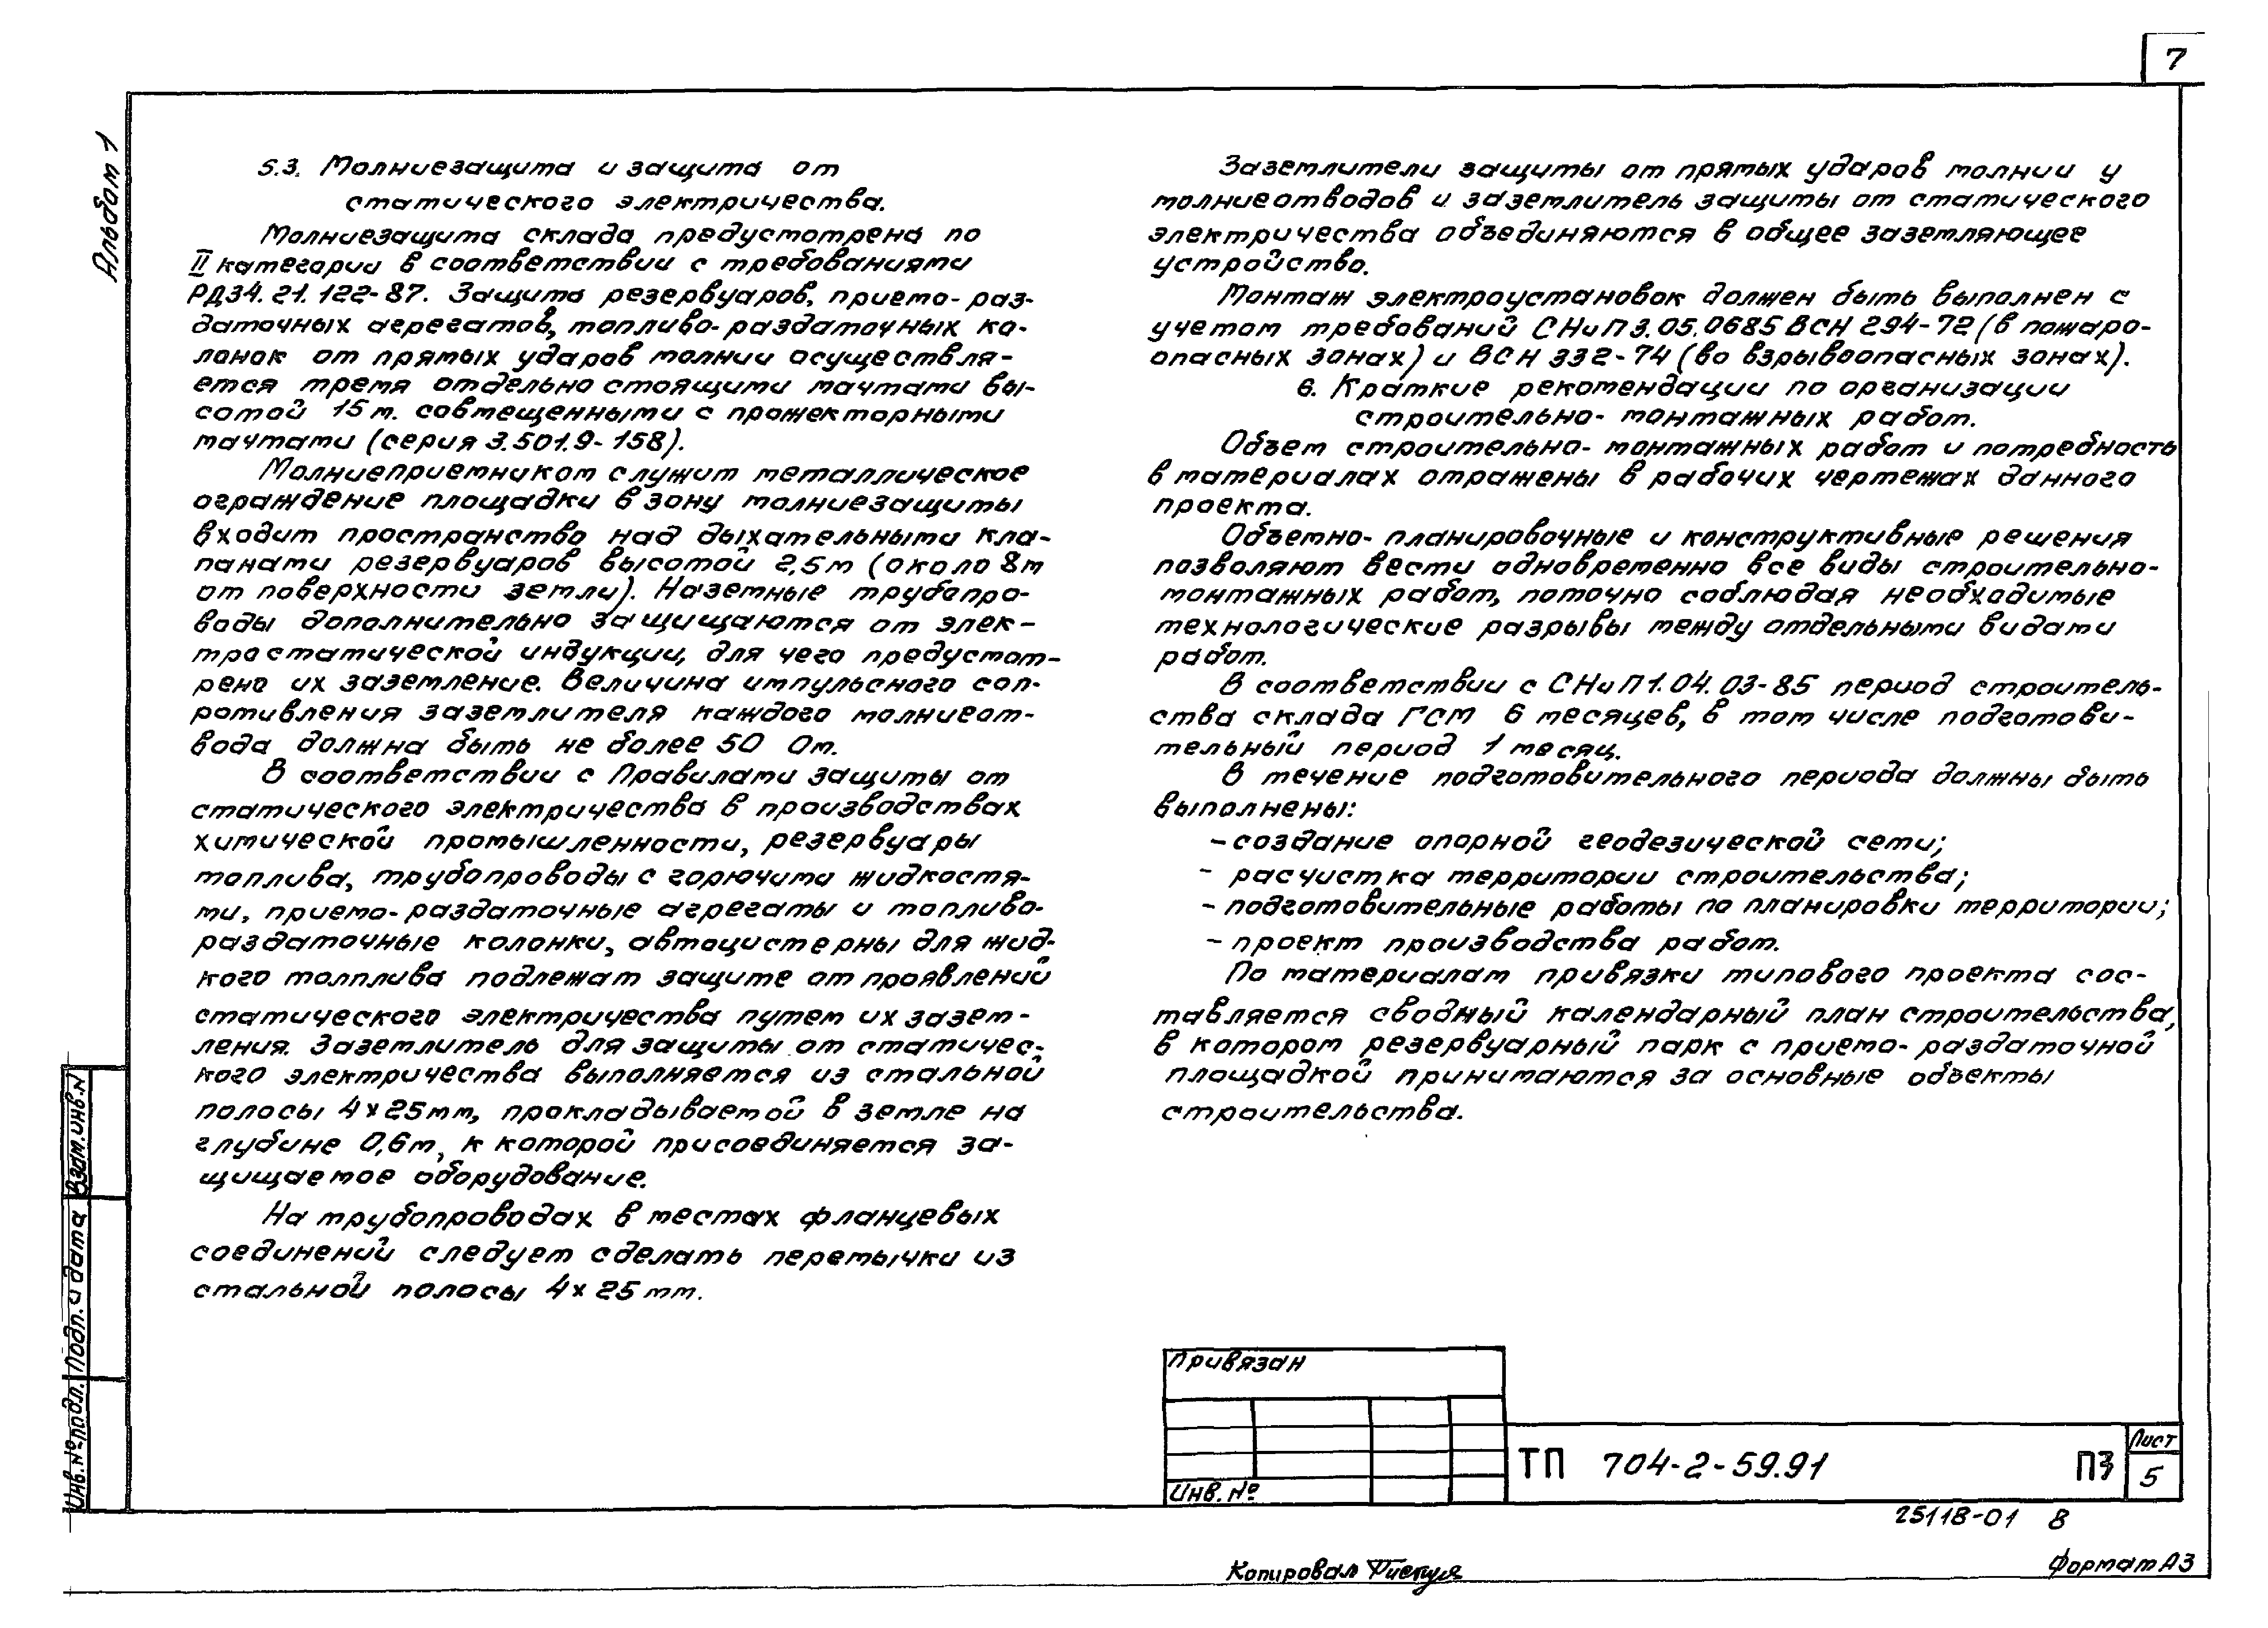 7
Альбом 1
5.3. Молниезащита и защита от
статического электричества.
Молниезащита склада предусмотрена по
II категории в соответствии с требованиями
РД34.21.122-87. Защита резервуаров, приемо-раз-
даточных агрегатов, топливо-раздаточных ко-
лонок от прямых ударов молнии осуществля-
ется тремя отдельно стоящими мачтами вы-
сотой 15м. совмещенными с прожекторными
мачтами (серия 3.501.9-158).
Молниеприемником служит металлическое
ограждение площадки в зону молниезащиты
входит пространство над дыхательными кла-
панами резервуаров высотой 2,5м (около 8м
от поверхности земли). Наземные трубопро-
воды дополнительно защищаются от элек-
тростатической индукции, для чего предусмот-
рено их заземление. Величина импульсного соп-
ротивления заземлителя каждого молниеот-
вода должна быть не более 50 Ом.
В соответствии с Правилами защиты от
статического электричества в производствах
химической промышленности, резервуары
топлива, трубопроводы с горючими жидкостя-
ми, приемо-раздаточные агрегаты и топливо-
раздаточные колонки, автоцистерны для жид-
кого топлива подлежат защите от проявлений
статического электричества путем их зазем-
ления. Заземлитель для защиты от статичес-
кого электричества выполняется из стальной
полосы 4х25мм, прокладываемой в земле на
глубине 0,6м, к которой присоединяется за-
щищаемое оборудование.
На трубопроводах в местах фланцевых
соединений следует сделать перемычки из
стальной полосы 4х25мм.
Заземлители защиты от прямых ударов молнии у
молниеотводов и заземлитель защиты от статического
электричества объединяются в общее заземляющее
устройство.
Монтаж электроустановок должен быть выполнен с
учетом требований СНиП 3.05.0685 ВСН 294-72 (в пожаро-
опасных зонах) и ВСН 332-74 (во взрывоопасных зонах).
6. Краткие рекомендации по организации
строительно-монтажных работ.
Объем строительно-монтажных работ и потребность
в материалах отражены в рабочих чертежах данного
проекта.
Объемно-планировочные и конструктивные решения
позволяют вести одновременно все виды строительно-
монтажных работ, поточно соблюдая необходимые
технологические разрывы между отдельными видами
работ.
В соответствии с СНиП 1.04.03-85 период строитель-
ства склада ГСМ 6 месяцев, в том числе подготови-
тельный период 1 месяц.
В течение подготовительного периода должны быть
выполнены:
- создание опорной геодезической сети;
- расчистка территории строительства;
- подготовительные работы по планировки территории;
- проект производства работ.
По материалам привязки типового проекта сос-
тавляется сводный календарный план строительства,
в котором резервуарный парк с приемо-раздаточной
площадкой принимаются за основные объекты
строительства.
Взам.инв.N
Подп. и дата
Инв.№ подл.
Привязан
Инв.№
ТП 704-2-59.91 ПЗ
Лист
5
25118-01 8
Копировал
Формат А3